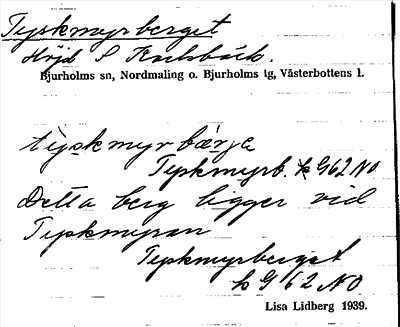 Tyskmyrberget
Höjd S Karlsbäck.
Bjurholms sn, Nordmaling o. Bjurholms tg, Västerbottens l.
tyskmyrbærja
Tyskmyrb. k G62NO
Detta berg ligger vid
Tyskmyran
Tyskmyrberget
k G62 NO
Lisa Lidberg 1939.